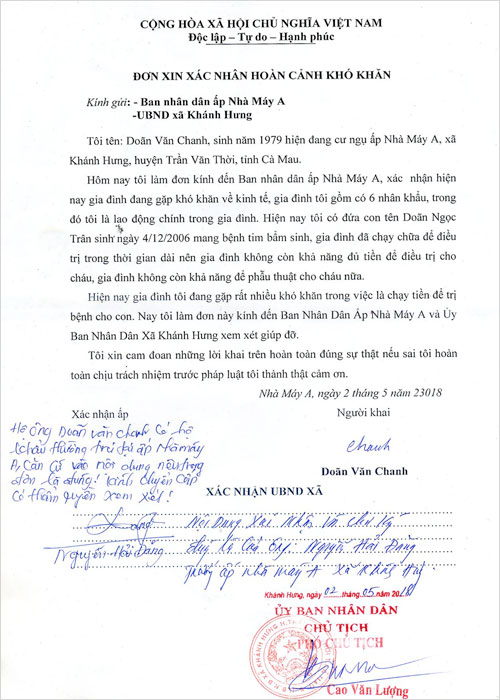 CỘNG HÒA XÃ HỘI CHỦ NGHĨA VIỆT NAM
Độc lập – Tự do – Hạnh phúc
ĐƠN XIN XÁC NHẬN HOÀN CẢNH KHÓ KHĂN
Kính gửi: - Ban nhân dân ấp Nhà Máy A
-UBND xã Khánh Hưng
Tôi tên: Doãn Văn Chanh, sinh năm 1979 hiện đang cư ngụ ấp Nhà Máy A, xã
Khánh Hưng, huyện Trần Văn Thời, tỉnh Cà Mau.
Hôm nay tôi làm đơn kính đến Ban nhân dân ấp Nhà Máy A, xác nhận hiện
nay gia đình đang gặp khó khăn về kinh tế, gia đình tôi gồm có 6 nhân khẩu, trong
đó tôi là lao động chính trong gia đình. Hiện nay tôi có đứa con tên Doãn Ngọc
Trân sinh ngày 4/12/2006 mang bệnh tim bẩm sinh, gia đình đã chạy chữa để điều
trị trong thời gian dài nên gia đình không còn khả năng đủ tiền để điều trị cho
cháu, gia đình không còn khả năng để phẫu thuật cho cháu nữa.
Hiện nay gia đình tôi đang gặp rất nhiều khó khăn trong việc là chạy tiền để trị
bệnh cho con. Nay tôi làm đơn này kính đến Ban Nhân Dân Ấp Nhà Máy A và Ủy
Ban Nhân Dân Xã Khánh Hưng xem xét giúp đỡ.
Tôi xin cam đoan những lời khai trên hoàn toàn đúng sự thật nếu sai tôi hoàn
toàn chịu trách nhiệm trước pháp luật tôi thành thật cảm ơn.
Nhà Máy A, ngày 2 tháng 5 năm 23018
Xác nhận ấp
Người khai
Hộ ông Doãn văn chanh Có hộ
khẩu thường trú tại ấp Nhà máy
A, Căn cứ vào nội dung nêu trong
đơn là đúng! Kính chuyển Cấp
Có thẩm quyền xem xét!
Chanh
Doãn Văn Chanh
XÁC NHẬN UBND XÃ
Nội Dung Xác Nhận Và Chữ Ký
Nguyễn Hải Đăng
Là Của Ông: Nguyễn Hải Đăng
Trưởng ấp nhà máy A xã Khánh Hưng
Khánh Hưng, ngày 02 tháng 05 năm 2018
ỦY BAN NHÂN DÂN
CHỦ TỊCH
PHÓ CHỦ TỊCH
Cao Văn Lượng